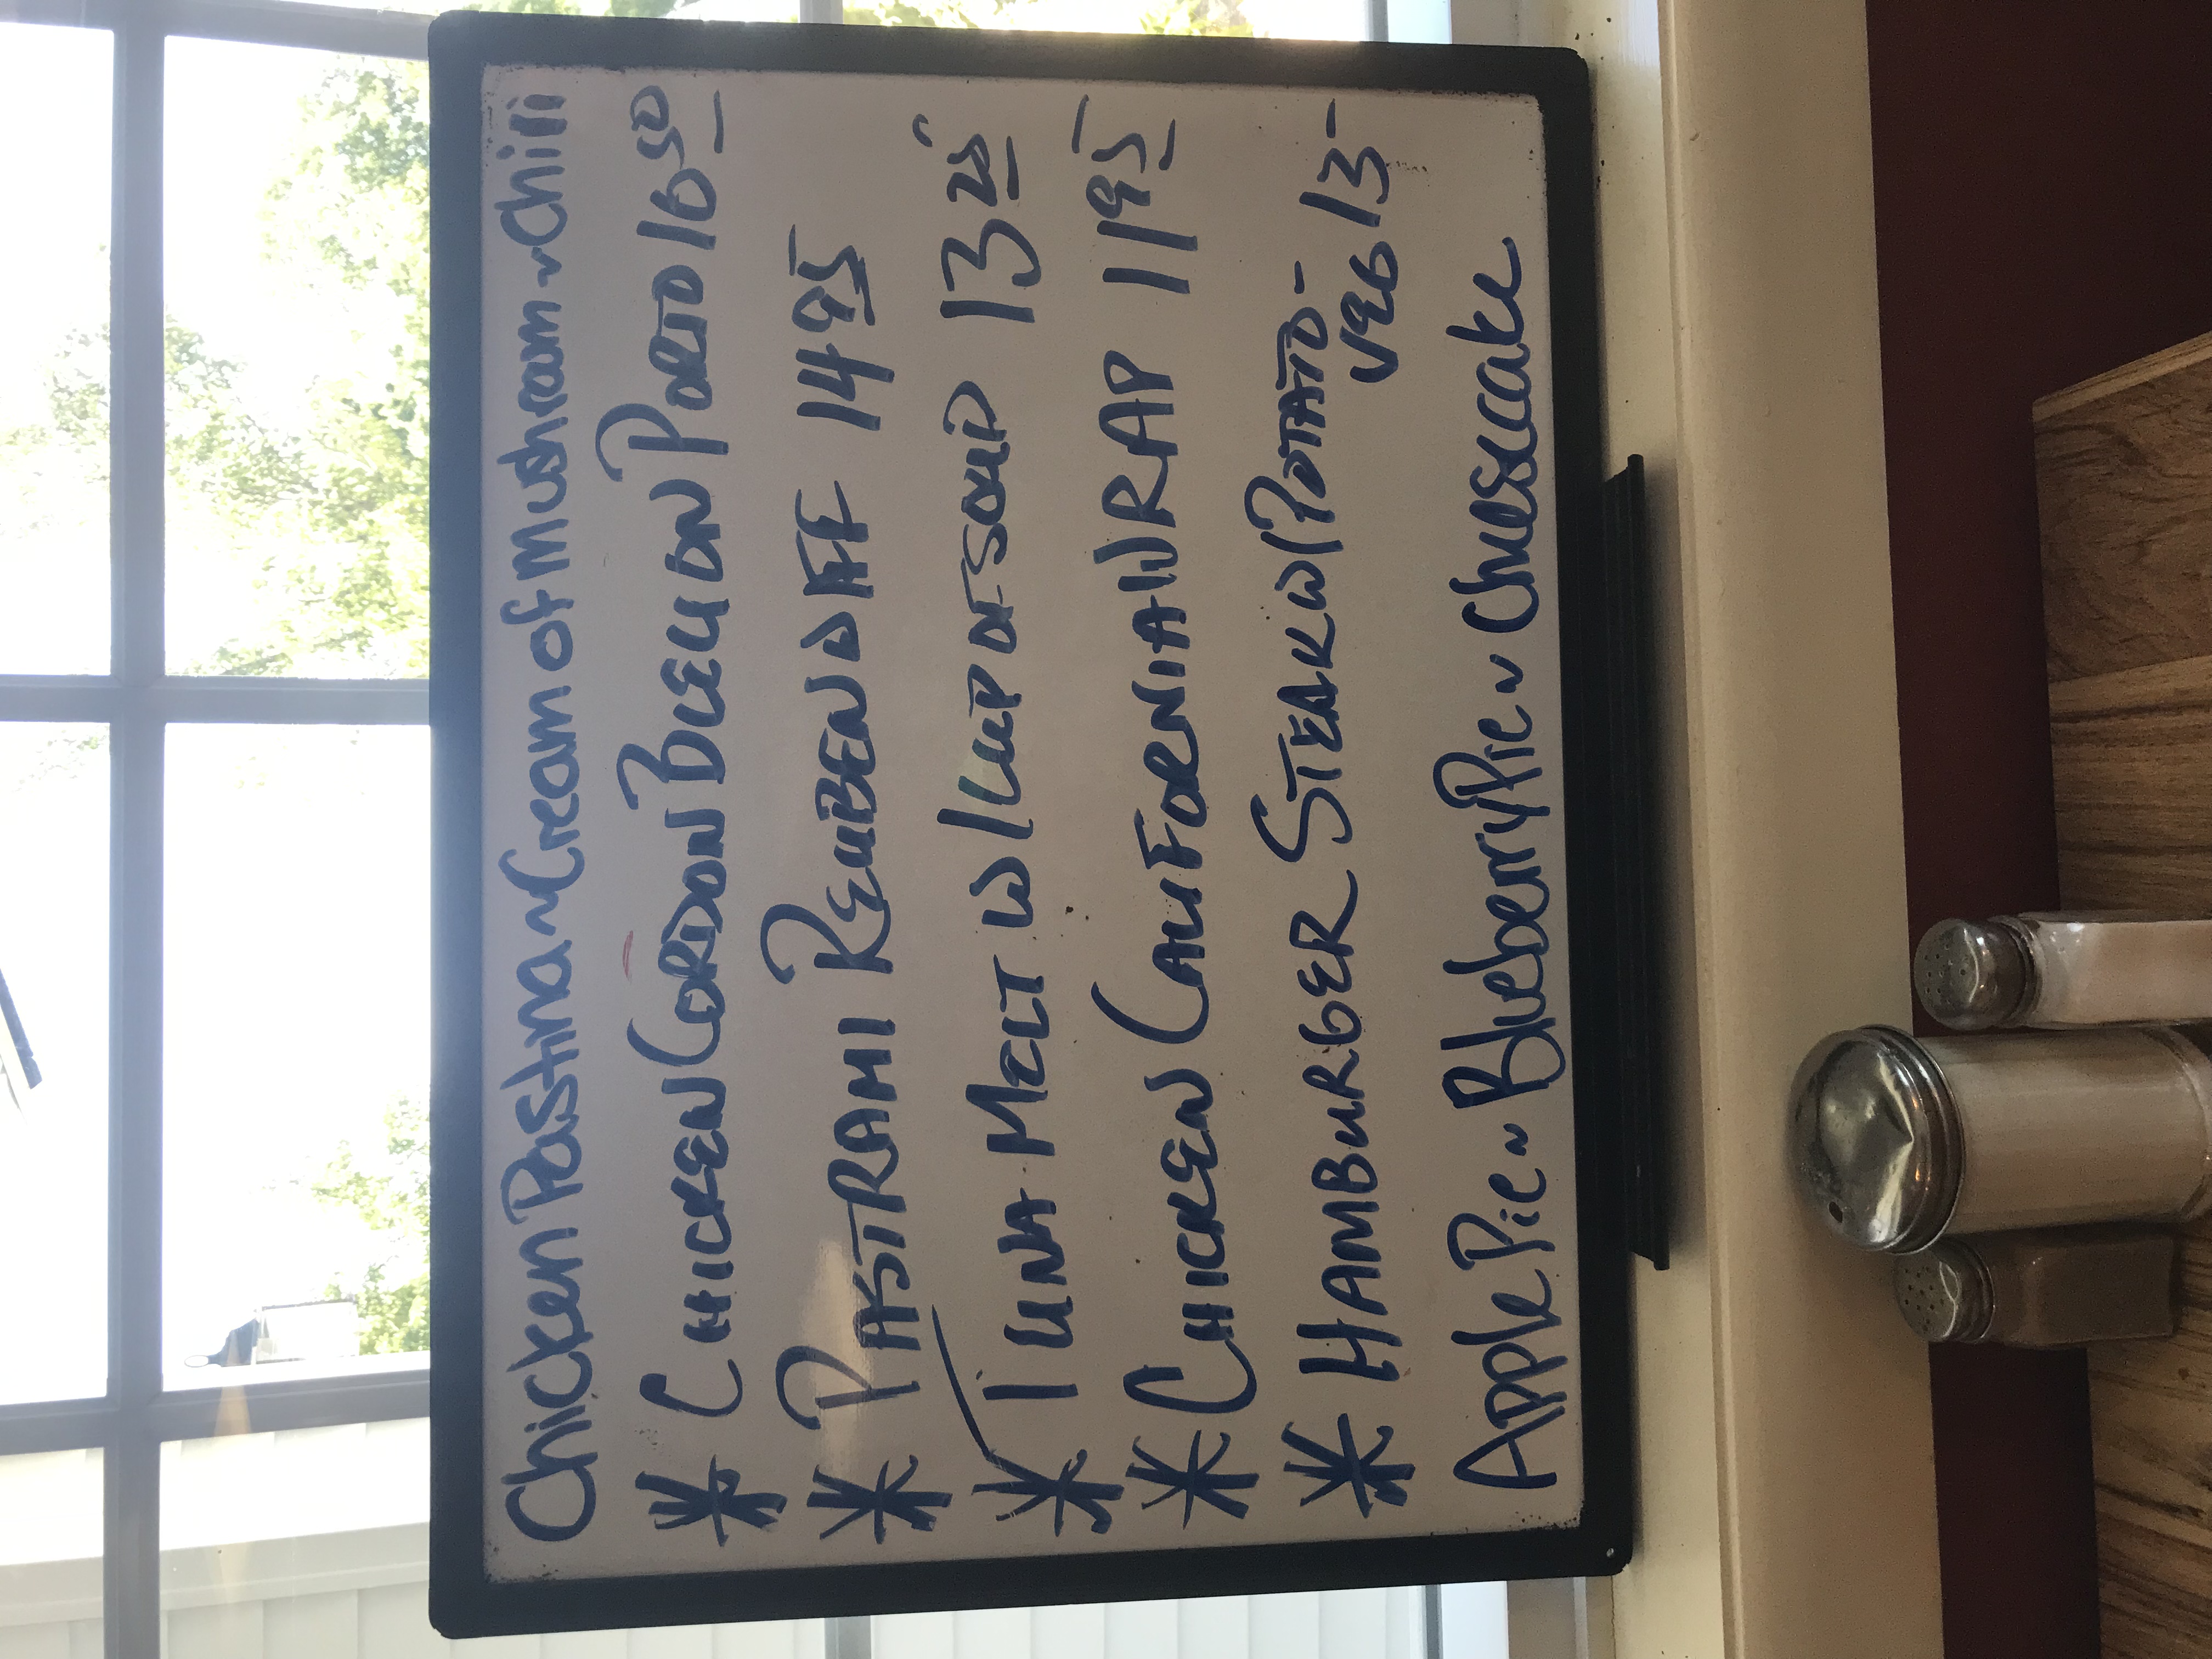 Chicken Pastina ~ Cream of Mushroom ~ Chili
* CHICKEN CORDON BLEU ON PORTO 16 50
* PASTRAMI REUBEN W FF 14 95
* TUNA MELT W/ CUP OF SOUP 13 25
* CHICKEN CALIFORNIA WRAP 11 95
* HAMBURGER STEAK W/ POTATO -
VEG 13-
Apple Pie ~ Blueberry Pie ~ Cheesecake